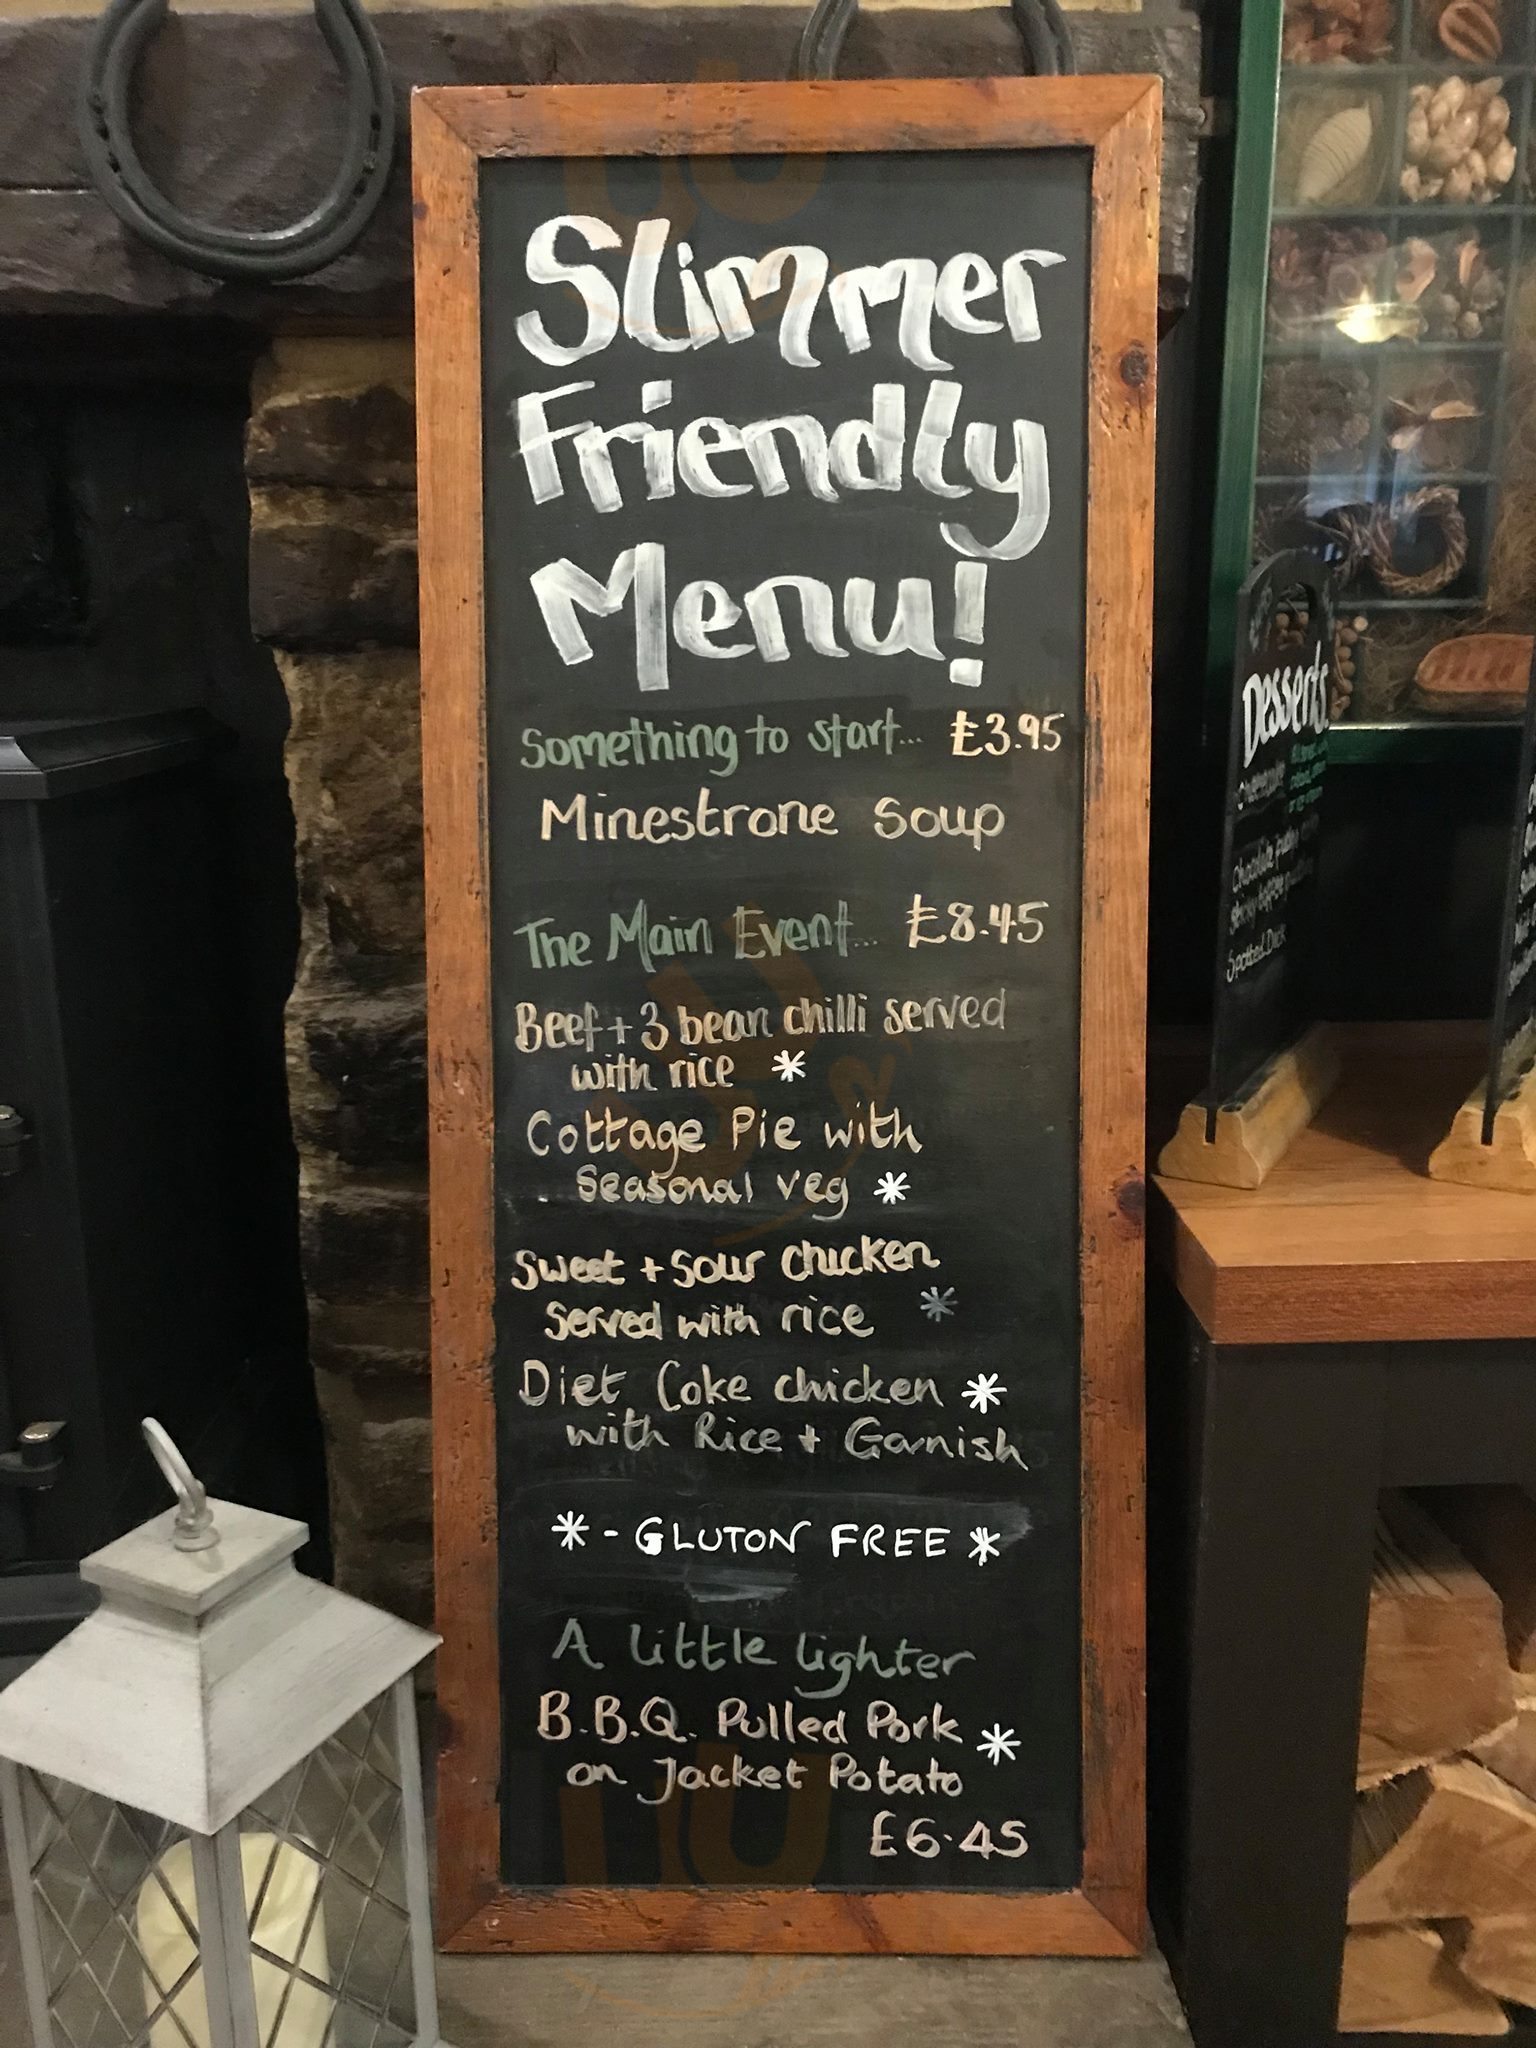 Slimmer
Friendly
Menu!
Something to start... £3.95
Minestrone Soup
The Main Event... £8.45
Beef + 3 bean chilli served
with rice *
Cottage Pie with
Seasonal veg *
Sweet + Sour Chicken
Served with rice *
Diet Coke chicken *
with Rice + Garnish
* - GLUTON FREE *
A little lighter
B.B.Q. Pulled Pork *
on Jacket Potato
£6.45
Desserts
Chocolate fudge
sticky toffee
Spotted Dick